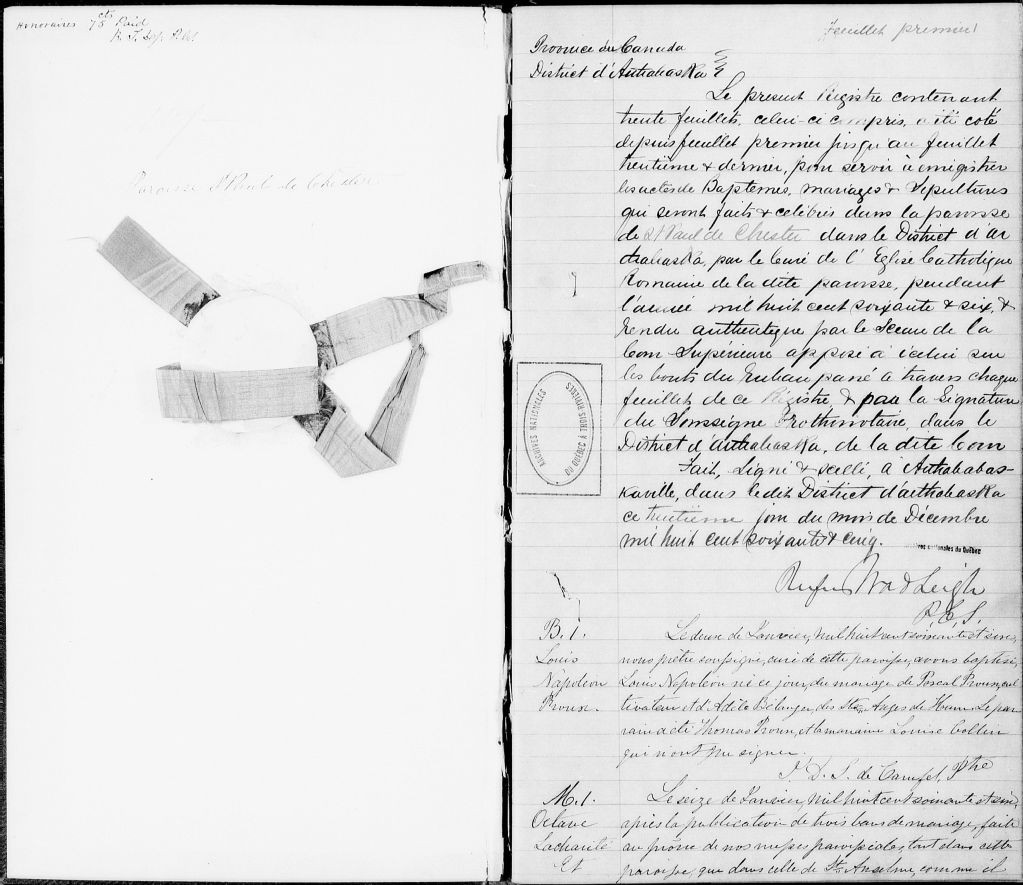 Honoraires 75 cts Paid
Paroisse St Paul de Chester
Feuillet premier
Province du Canada
District d'Arthabaska
Le present Régistre contenant
trente feuillets, celui-ci compris, a été coté
depuis feuillet premier jusqu'au feuillet
trentième & dernier, pour servir à enrégistrer
les actes de Baptemes, mariages & Sepultures
qui seront faits & célébrés dans la paroisse
de St Paul de Chester dans le District d'Ar
thabaska, par le Curé de l'Eglise Catholique
Romaine de la dite paroisse, pendant
l'année mil huit cent soixante & six, &
rendu authentique par le Sceau de la
Cour Supérieure apposé à icelui sur
les bouts du Ruban passé à travers chaque
feuillet de ce Régistre, & par la Signature
du Soussigné Prothonotaire, dans le
District d'Arthabaska, de la dite Cour
Fait, Signé & scellé, à Arthabas-
kaville, dans le dit District d'Arthabaska
ce trentième jour du mois de Décembre
mil huit cent soixante & cinq.
ARCHIVES NATIONALES
DU QUÉBEC À TROIS-RIVIÈRES
nationales du Québec
Rufus Wadleigh
P.C.S.
B. 1.
Louis
Napoléon
Proux.
Le douze de Janvier, mil huit cent soixante et six,
nous prêtre soussigné, curé de cette paroisse, avons baptisé,
Louis Napoléon né ce jour, du mariage de Pascal Proux, cul
tivateur et d'Adèle Bélanger, des Sts Anges de Ham. Le par
rain a été Thomas Proux, et la marraine Louise Collin
qui n'ont pu signer.
Ptre
M. 1.
Octave
Lacharité
Et
Le seize de Janvier, mil huit cent soixante et six,
après la publication de trois bans de mariage, faite
au prône de nos messes paroissiales, tant dans cette
paroisse, que dans celle de St Anselme, comme il